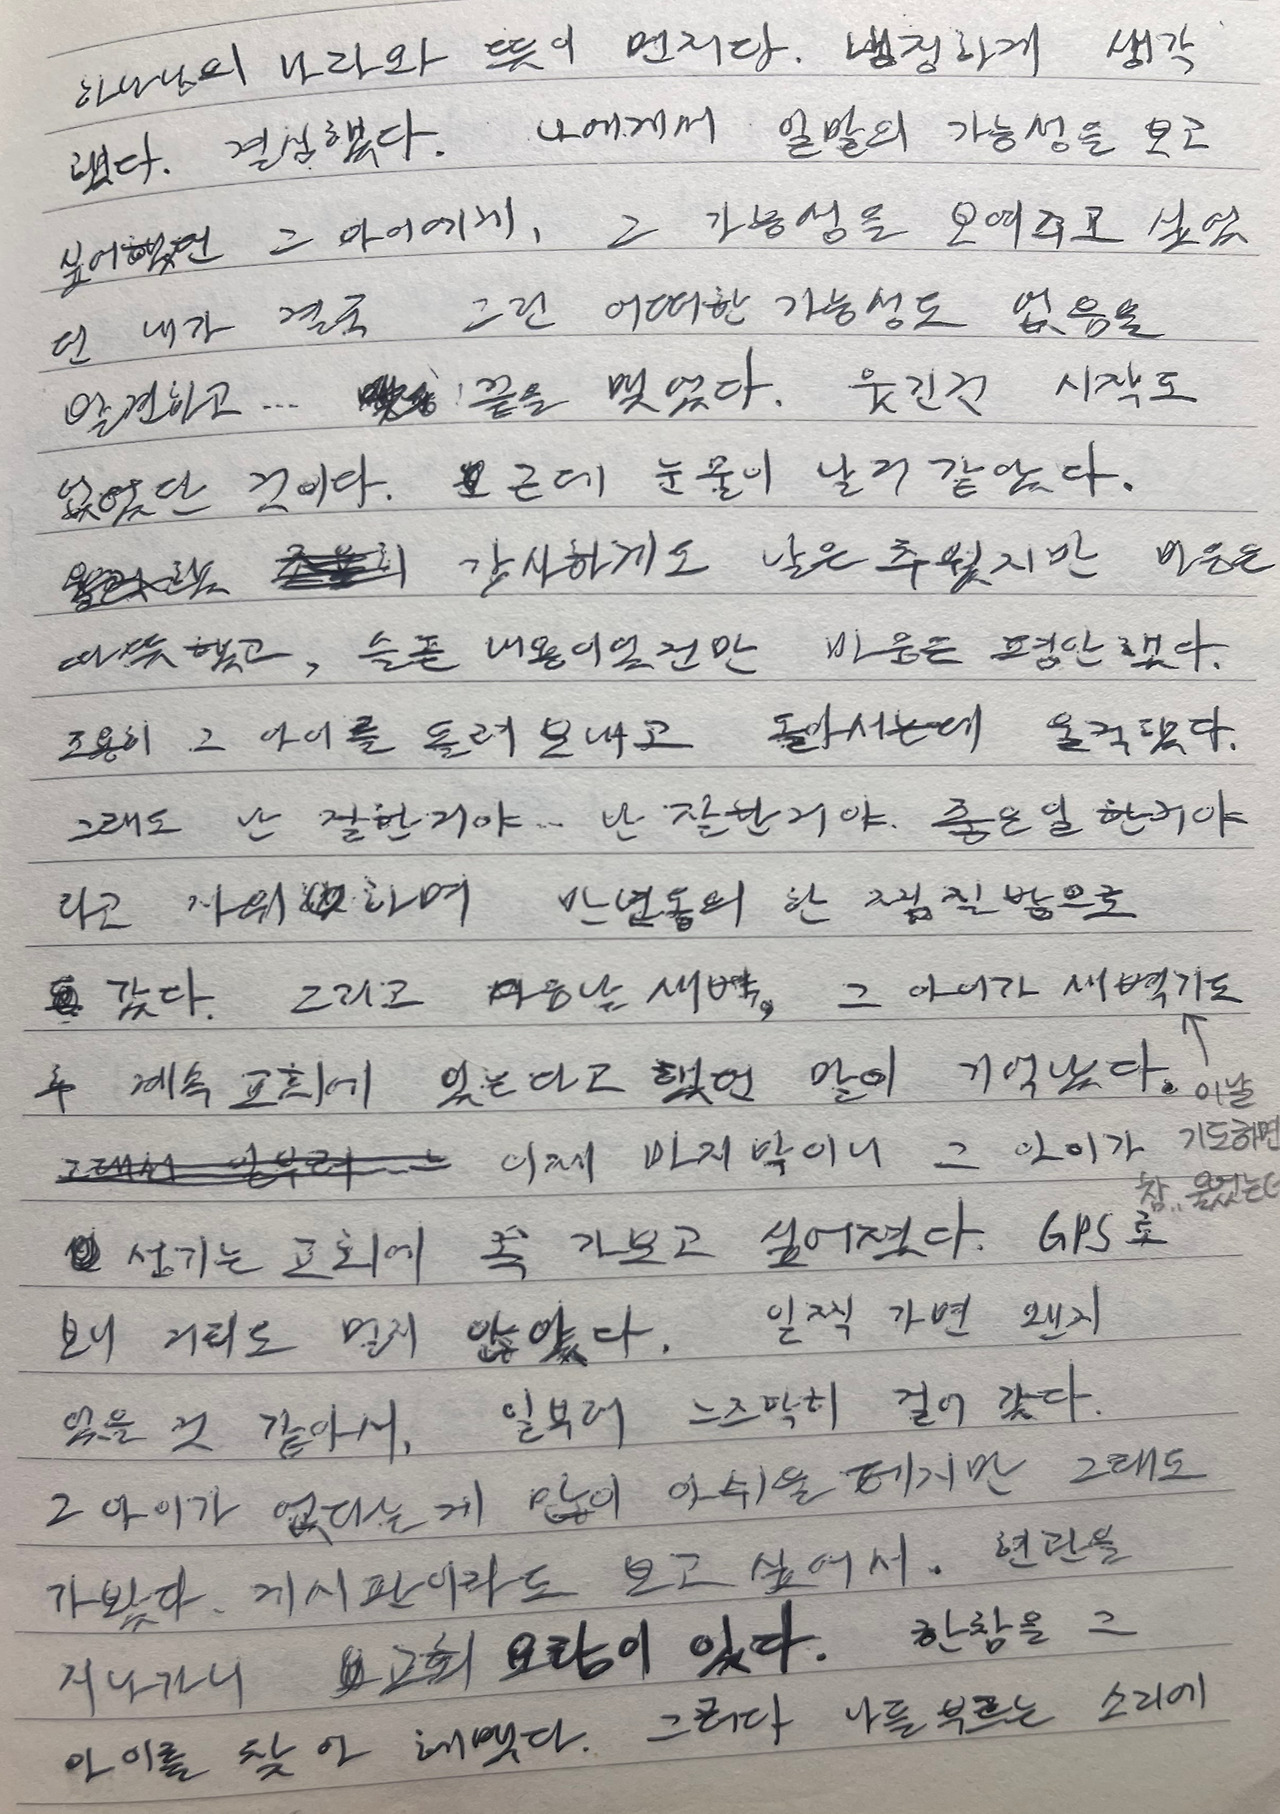 하나님의 나라와 뜻이 먼저다. 냉정하게 생각
했다. 결심했다. 나에게서 일말의 가능성을 보고
싶어했던 그 아이에게, 그 가능성을 보여주고 싶었
던 내가 결국 그런 어떠한 가능성도 없음을
발견하고... 끝을 맺었다. 웃긴건 시작도
없었단 것이다. 근데 눈물이 날거 같았다.
감사하게도 날은 추웠지만 마음은
따뜻했고, 슬픈 내용이었건만 마음은 평안했다.
조용히 그 아이를 돌려 보내고 돌아서는데 울컥했다.
그래도 난 잘한거야... 난 잘한거야. 좋은일 한거야
라고 자위하며 만년동의 한 찜질방으로
갔다. 그리고 다음날 새벽, 그 아이가 새벽기도
후 계속 교회에 있는다고 했던 말이 기억났다.
이날
기도하면
참.. 울었는데
그래서 일부러 이제 마지막이니 그 아이가
섬기는 교회에 꼭 가보고 싶어졌다. GPS로
보니 거리도 멀지 않았다. 일찍 가면 왠지
있을 것 같아서, 일부러 느즈막히 걸어 갔다.
그 아이가 없다는게 많이 아쉬울 테지만 그래도
가봤다. 게시판이라도 보고 싶어서. 현관을
지나가니 교회 요람이 있다. 한참을 그
아이를 찾아 헤맸다. 그러다 나를 부르는 소리에